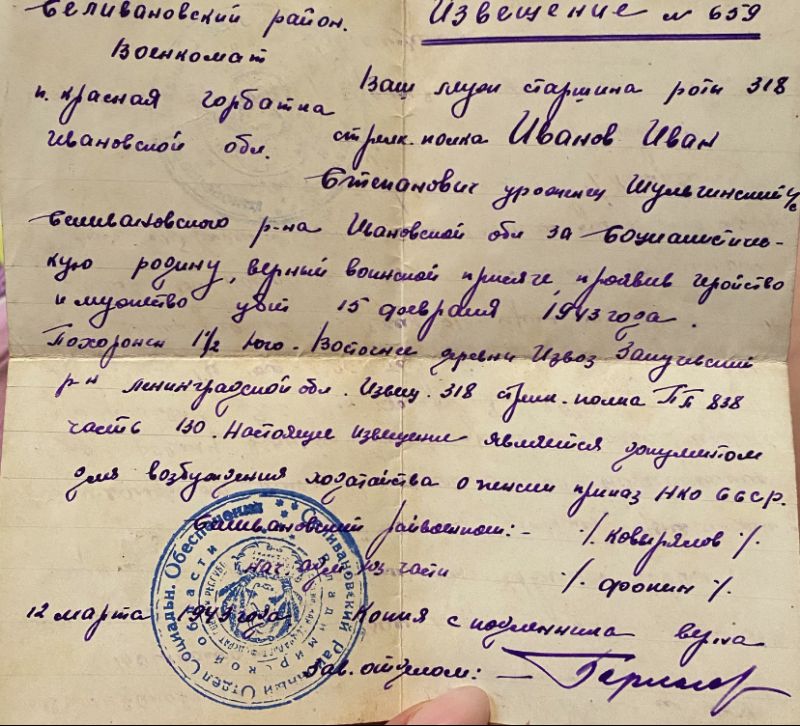 Селивановский район.
Извещение № 659
Военкомат
п. красная горбатка
Ивановской обл.
Ваш муж старшина роты 318
стрелк. полка Иванов Иван
Степанович уроженец Шульгинский с/с
Селивановского р-на Ивановской обл за Социалистичес-
кую родину, верный воинской присяге, проявив геройство
и мужество убит 15 февраля 1943 года.
Похоронен 1 1/2 Юго-Восточнее древни Извоз Залучский
р-н Ленинградской обл. Извещ. 318 стрелк. полка ПП 838
часть 130. Настоящее извещение является документом
для возбуждения ходатайства о пенсии приказ НКО СССР.
Селивановский райвоенком: - /. Ковырялов /.
нач. части /. Фокин /.
12 марта 1949 года Копия с подленника верна
Зав. отделом: -
Селивановский Районный Отдел Социальн. Обеспечения
Владимирской области